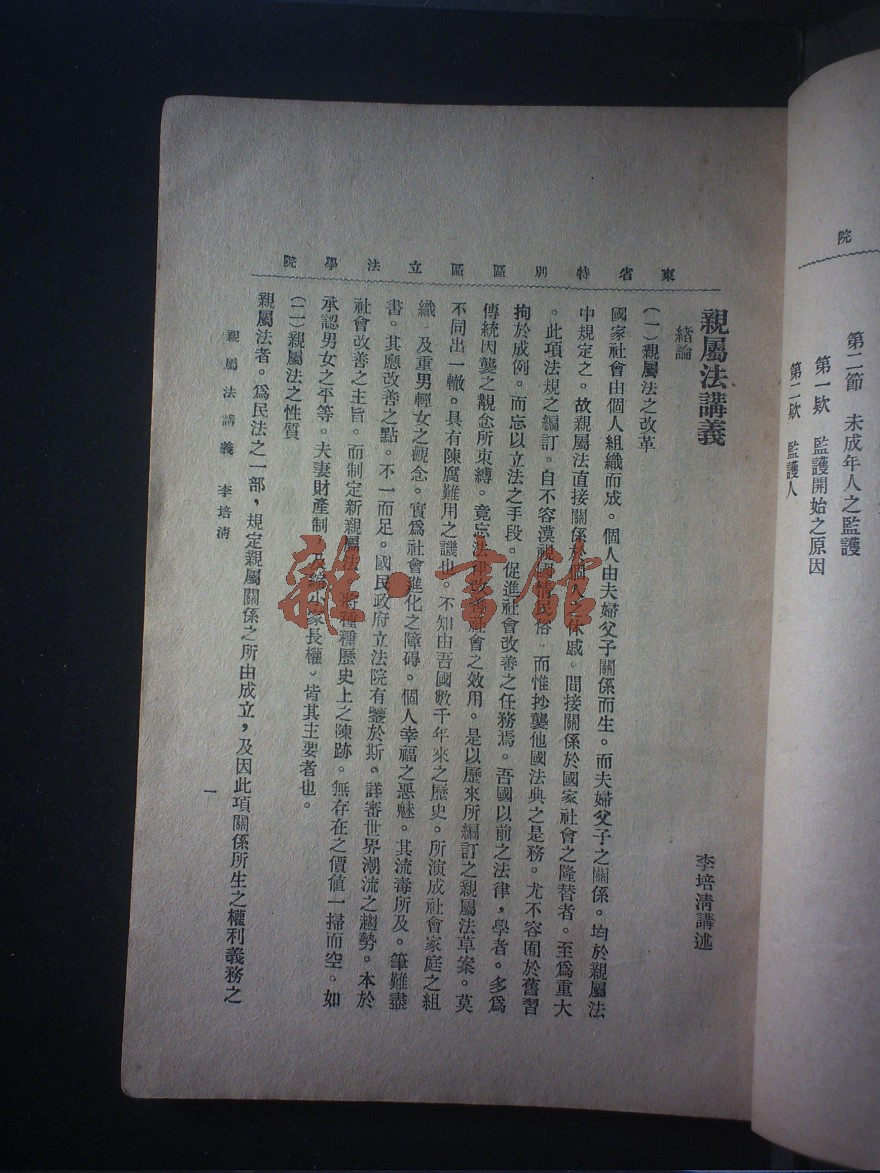 院
第二節　未成年人之監護
第一欵　監護開始之原因
第二欵　監護人
東省特別區區立法學院
親屬法講義
李培清講述
緒論
(一)親屬法之改革
國家社會由個人組織而成。個人由夫婦父子關係而生。而夫婦父子之關係。均於親屬法
中規定之。故親屬法直接關係於個人之休戚。間接關係於國家社會之隆替者。至爲重大
。此項法規之編訂。自不容漠視國情民俗。而惟抄襲他國法典之是務。尤不容囿於舊習
拘於成例。而忘以立法之手段。促進社會改善之任務焉。吾國以前之法律，學者。多爲
傳統因襲之觀念所束縛。竟忘法律改善社會之效用。是以歷來所編訂之親屬法草案。莫
不同出一轍。具有陳腐難用之譏也。不知由吾國數千年來之歷史。所演成社會家庭之組
織。及重男輕女之觀念。實爲社會進化之障碍。個人幸福之惡魅。其流毒所及。筆難盡
書。其應改善之點。不一而足。國民政府立法院有鑒於斯。詳審世界潮流之趨勢。本於
社會改善之主旨。而制定新親屬法。將種種歷史上之陳跡。無存在之價値一掃而空。如
承認男女之平等。夫妻財產制。及縮小家長權。皆其主要者也。
(二)親屬法之性質
親屬法者。爲民法之一部，規定親屬關係之所由成立，及因此項關係所生之權利義務之
親屬法講義　李培清
一
雜·書館